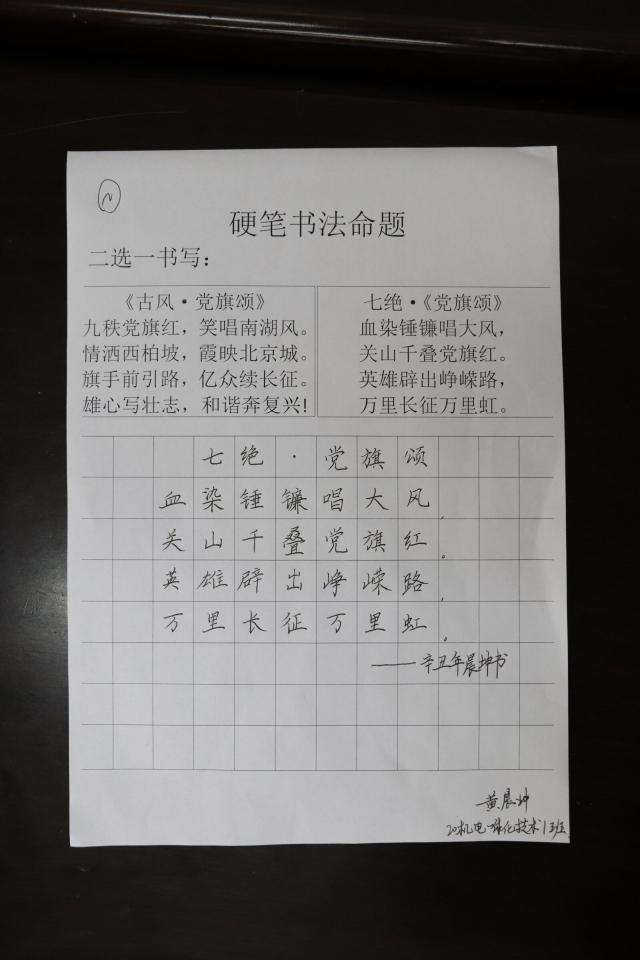 硬笔书法命题
二选一书写：
《古风·党旗颂》
九秩党旗红，笑唱南湖风。
情洒西柏坡，霞映北京城。
旗手前引路，亿众续长征。
雄心写壮志，和谐奔复兴!
七绝·《党旗颂》
血染锤镰唱大风，
关山千叠党旗红。
英雄辟出峥嵘路，
万里长征万里虹。
七绝·党旗颂
血染锤镰唱大风，
关山千叠党旗红。
英雄辟出峥嵘路，
万里长征万里虹。
——辛丑年晨坤书
黄晨坤
20机电一体化技术1班